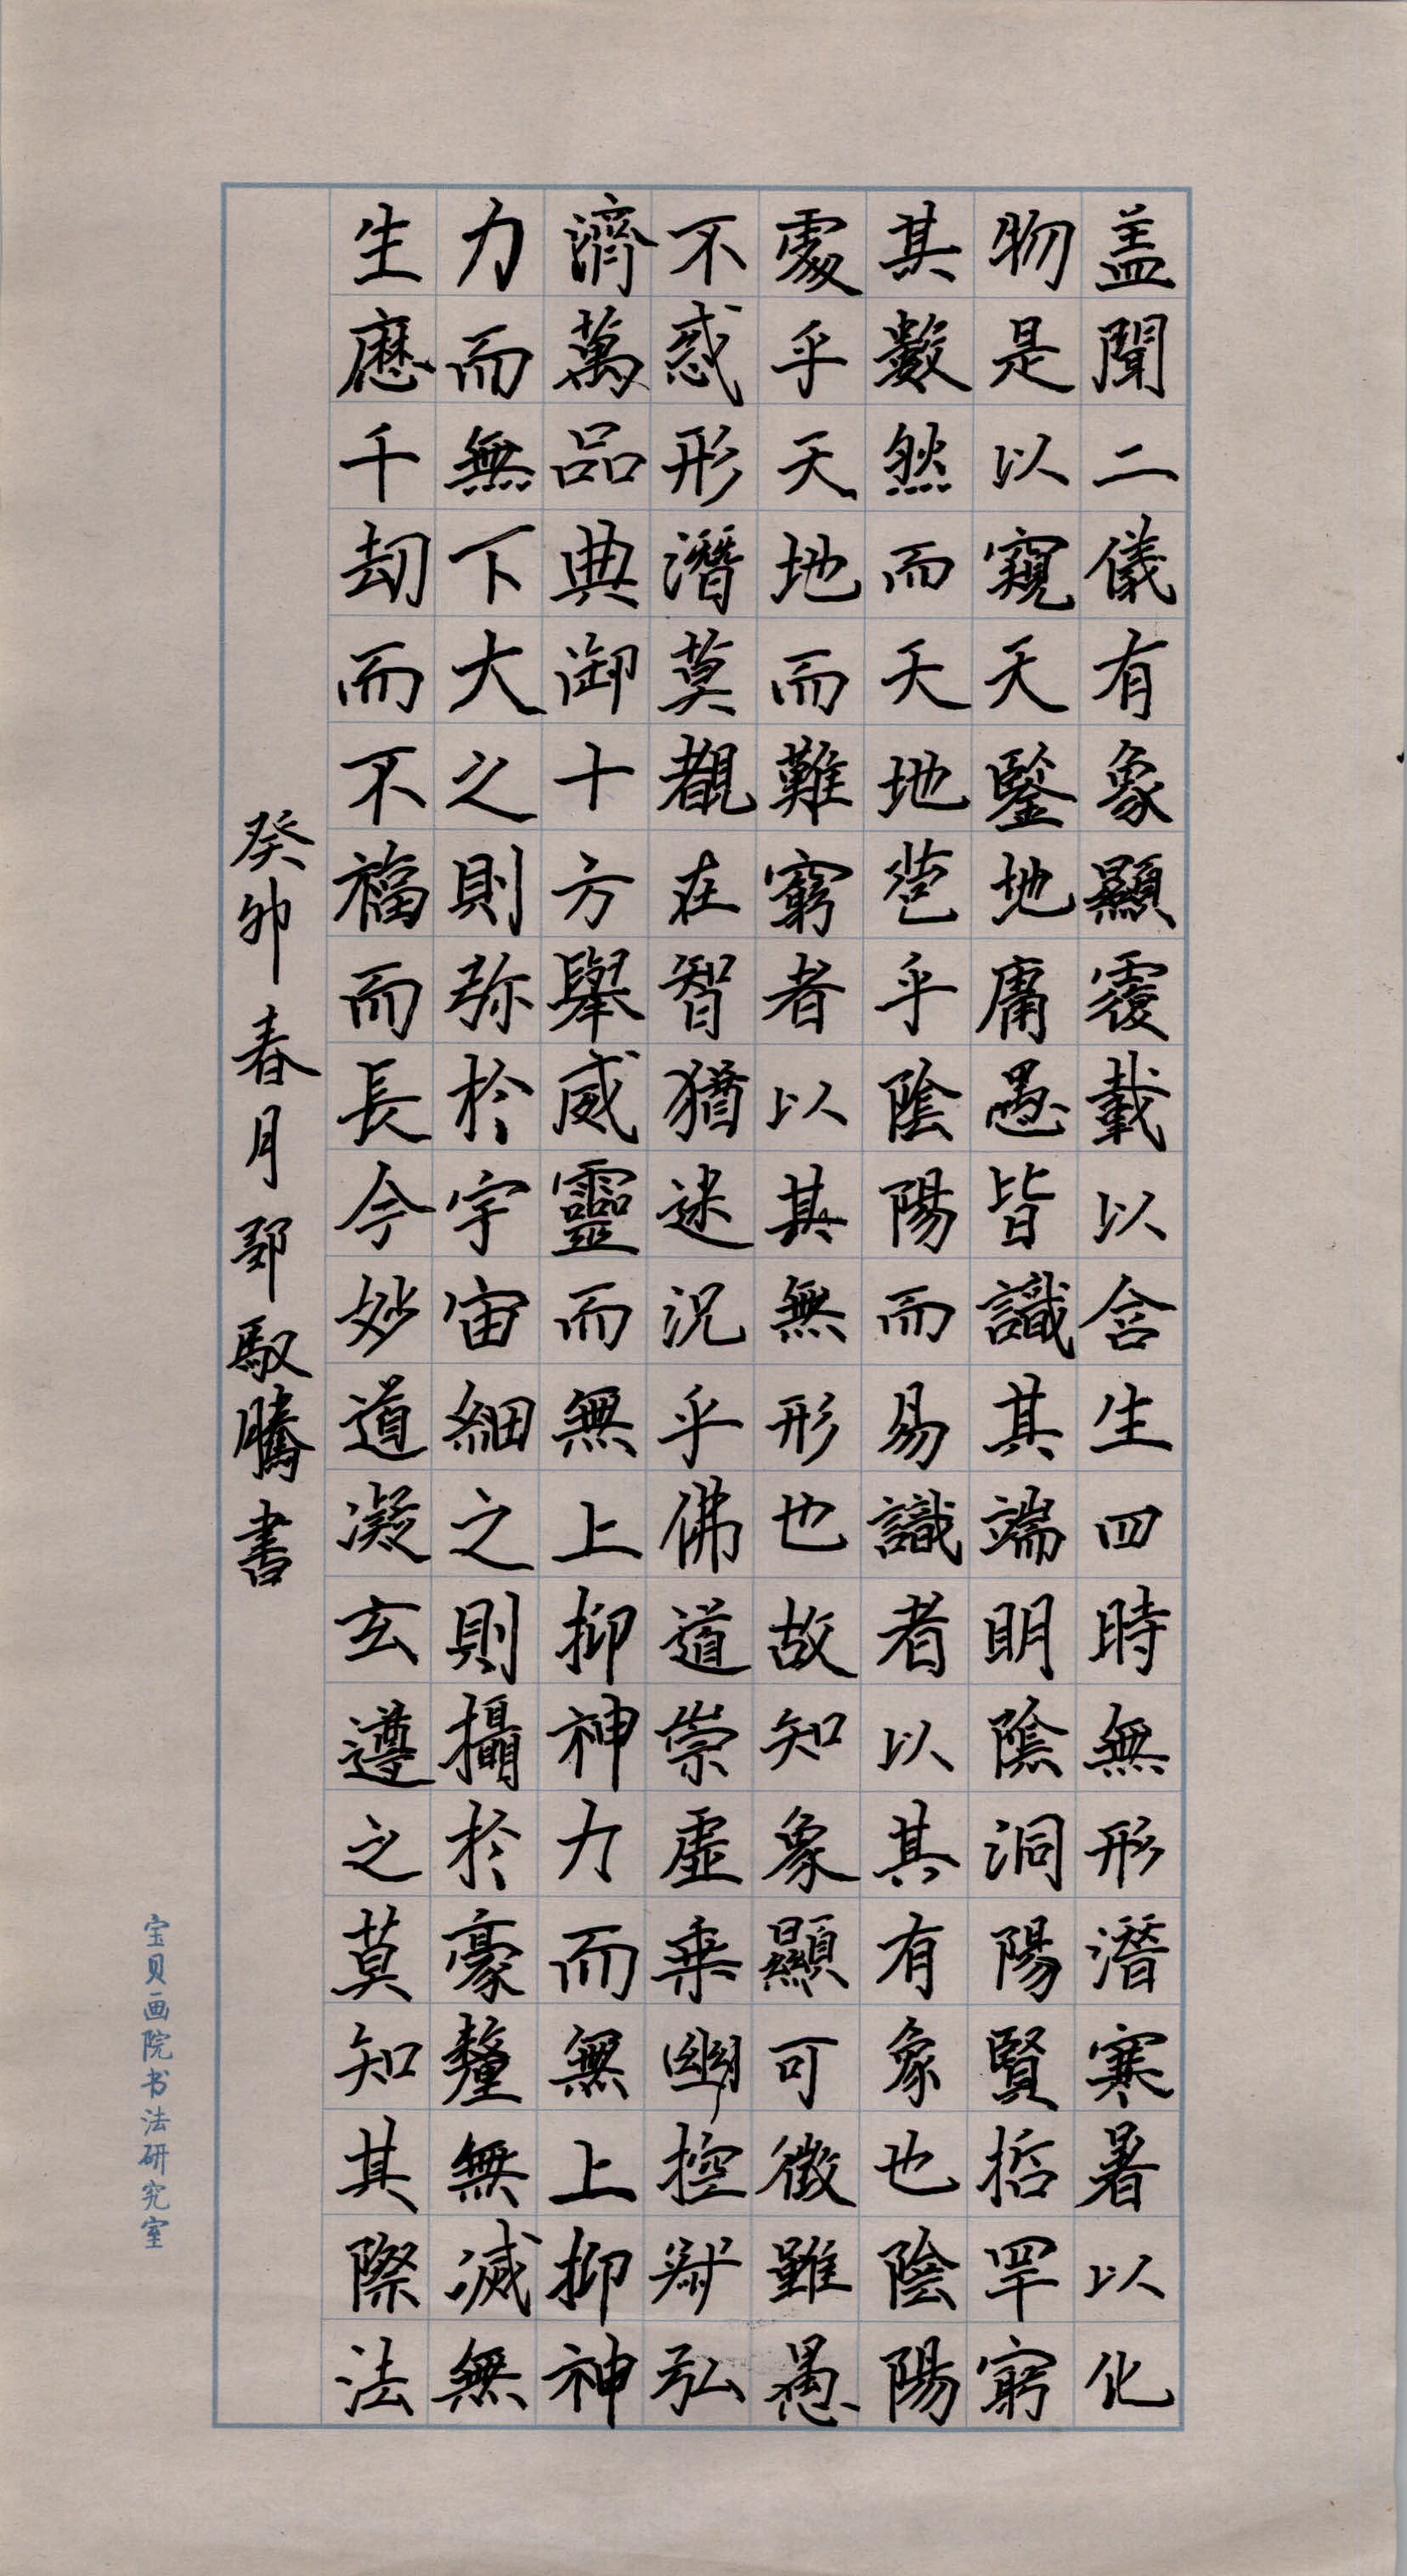 盖聞二儀有象顯覆載以含生四時無形潛寒暑以化
物是以窺天鑒地庸愚皆識其端明陰洞陽賢哲罕窮
其數然而天地苞乎陰陽而易識者以其有象也陰陽
處乎天地而難窮者以其無形也故知象顯可徵雖愚
不惑形潛莫覩在智猶迷況乎佛道崇虛乘幽控寂弘
濟萬品典御十方舉威靈而無上抑神力而無上抑神
力而無下大之則弥於宇宙細之則攝於豪釐無滅無
生歷千劫而不福而長今妙道凝玄遵之莫知其際法
癸卯春月郭馭騰書
宝贝画院书法研究室